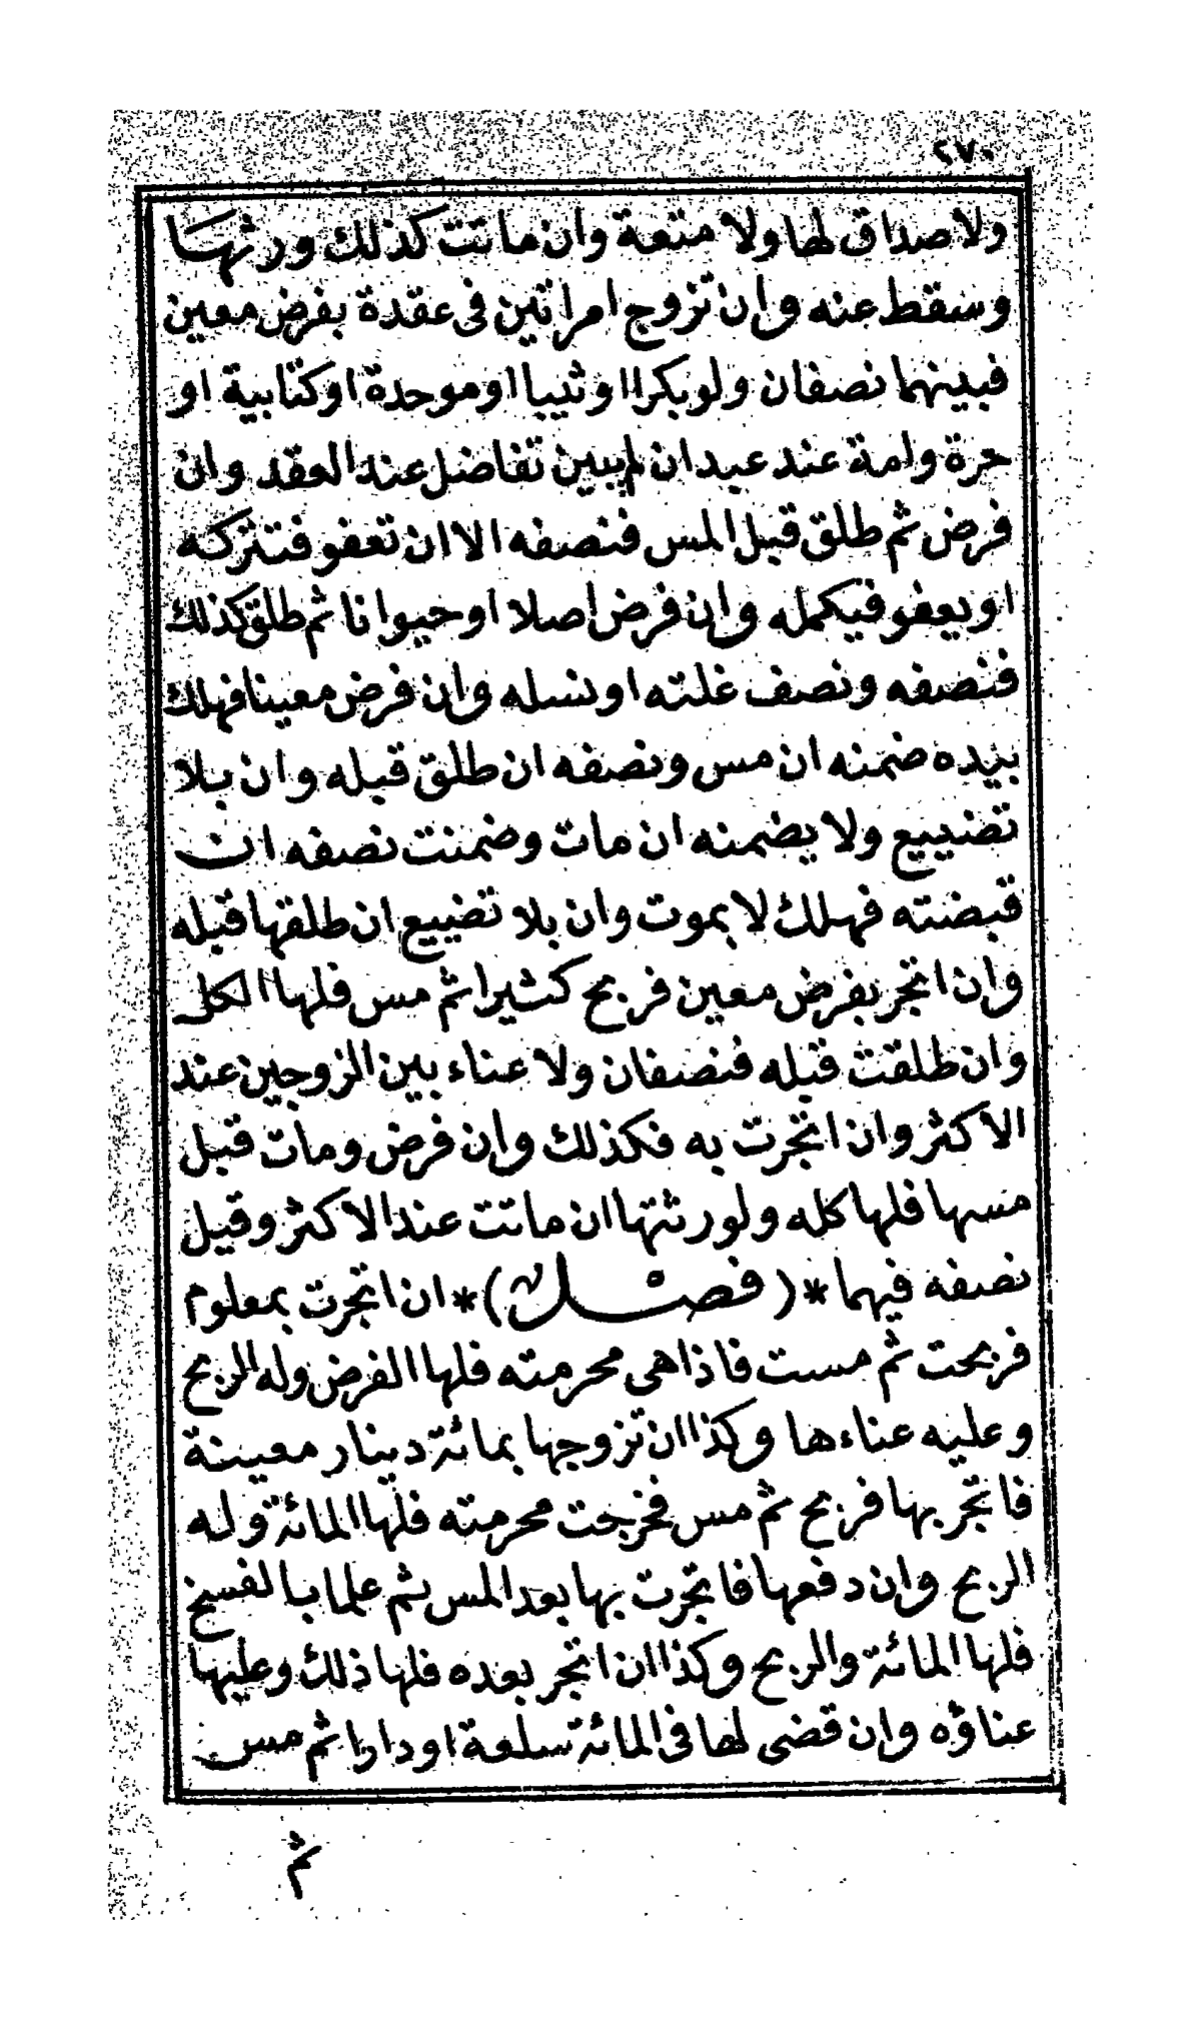 ٢٧٠
ولا صداق لها ولا متعة وان ماتت كذلك ورثها
وسقط عنه وان تزوج امراتين فى عقدة بفرض معين
فبينهما نصفان ولو بكرا او ثيبا او موحدة او كتابية او
حرة وامة عند عبد ان لم يبين تفاضل عند العقد وان
فرض ثم طلق قبل المس فنصفه الا ان تعفو فتتركه
او يعفو فيكمله وان فرض اصلا او حيوانا ثم طلق كذلك
فنصفه ونصف غلته او نسله وان فرض معينا فهلك
بيده ضمنه ان مس ونصفه ان طلق قبله وان بلا
تضييع ولا يضمنه ان مات وضمنت نصفه ان
قبضته فهلك لا بموت وان بلا تضييع ان طلقها قبله
وان اتجر بفرض معين فربح كثيرا ثم مس فلها الكل
وان طلقت قبله فنصفان ولا عناء بين الزوجين عند
الاكثر وان اتجرت به فكذلك وان فرض ومات قبل
مسها فلها كله ولورثتها ان ماتت عند الاكثر وقيل
نصفه فيهما *(فصل)* ان اتجرت بمعلوم
فربحت ثم مست فاذا هى محرمته فلها الفرض وله الربح
وعليه عناءها وكذا ان تزوجها بمائة دينار معينة
فاتجر بها فربح ثم مس فخرجت محرمته فلها المائة وله
الربح وان دفعها فاتجرت بها بعد المس ثم علما بالفسخ
فلها المائة والربح وكذا ان اتجر بعده فلها ذلك وعليها
عناؤه وان قضى لها فى المائة سلعة او دارا ثم مس
ثم